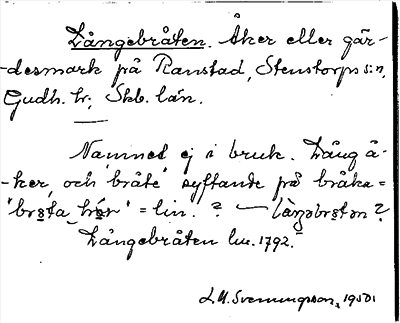 Långebråten. Åker eller går-
-desmark på Ranstad, Stenstorps sn,
Gudh. hr, Skb. län.
Namnet ej i bruk. Lång å-
-ker, och "bråte" syftande på bråka =
"brsta hör" = lin. ? — långəbrətən?
Långebråten lm. 1792.
L. M. Svenungsson, 1950.